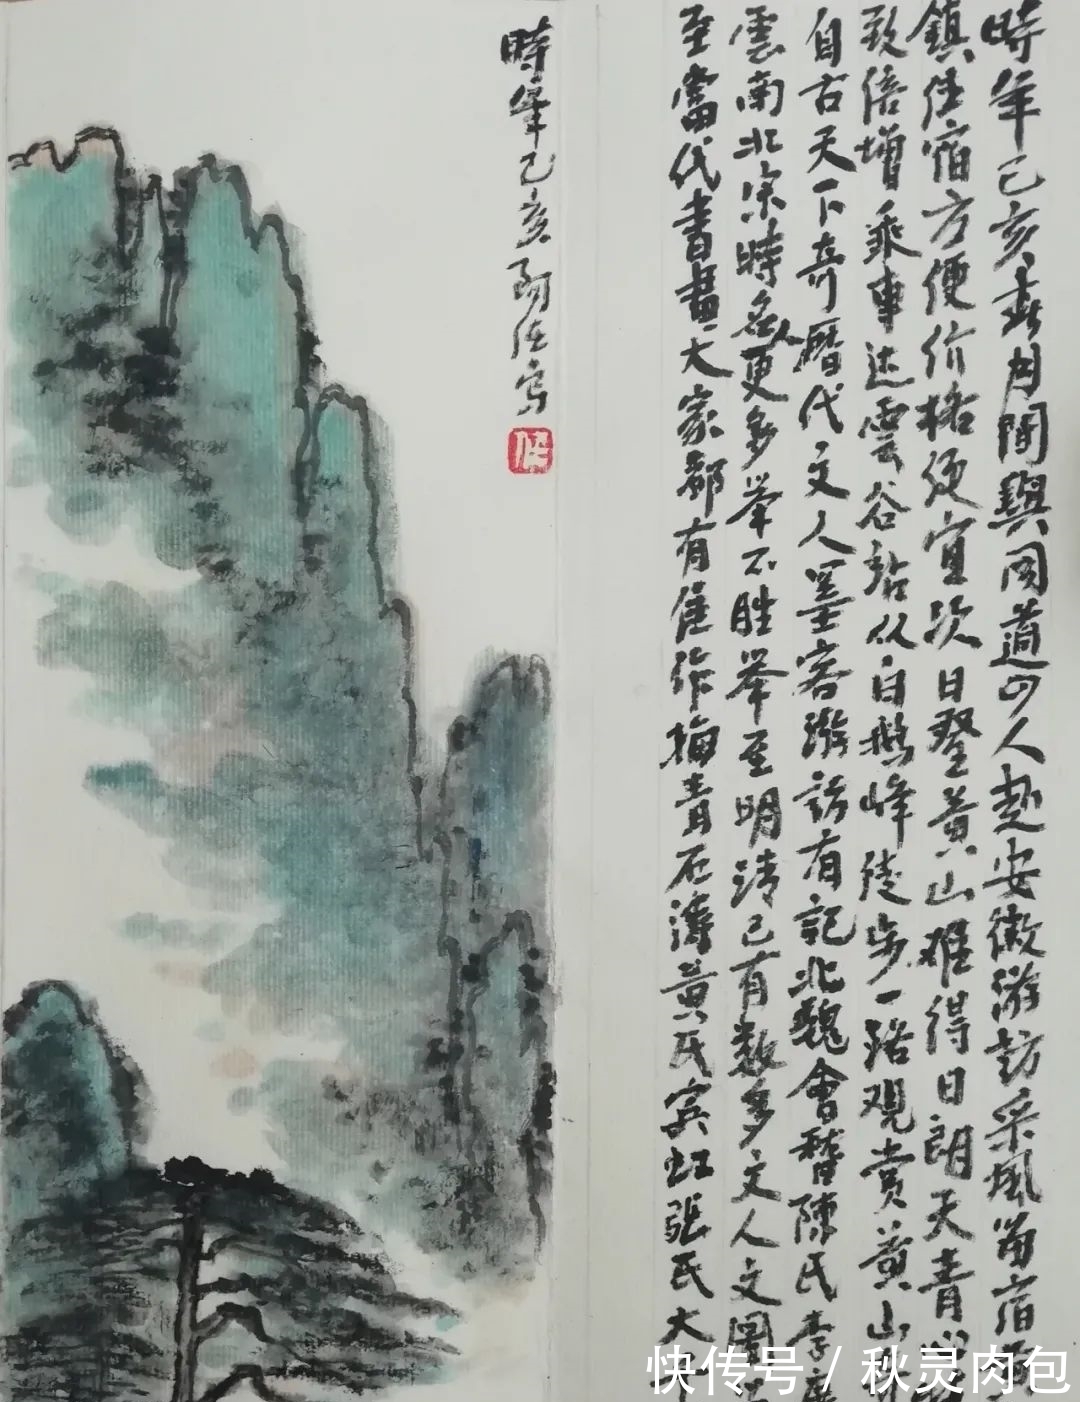 時年己亥春月間與同道四人赴安徽游訪采風當宿
鎮住宿方便价格便宜次日登黄山难得日朗天青
致倍增乘車达雲谷站从白鹅峰徒步一路观赏黄山
自古天下奇曆代文人墨客游訪有記北魏會稽陳氏李
雲南北宋時名人更多举不胜举至明清已有数多文人文
至當代書畫大家都有佳作梅青石濤黄氏宾虹張氏大千
時年己亥阿佐写
快传号 / 秋灵肉包